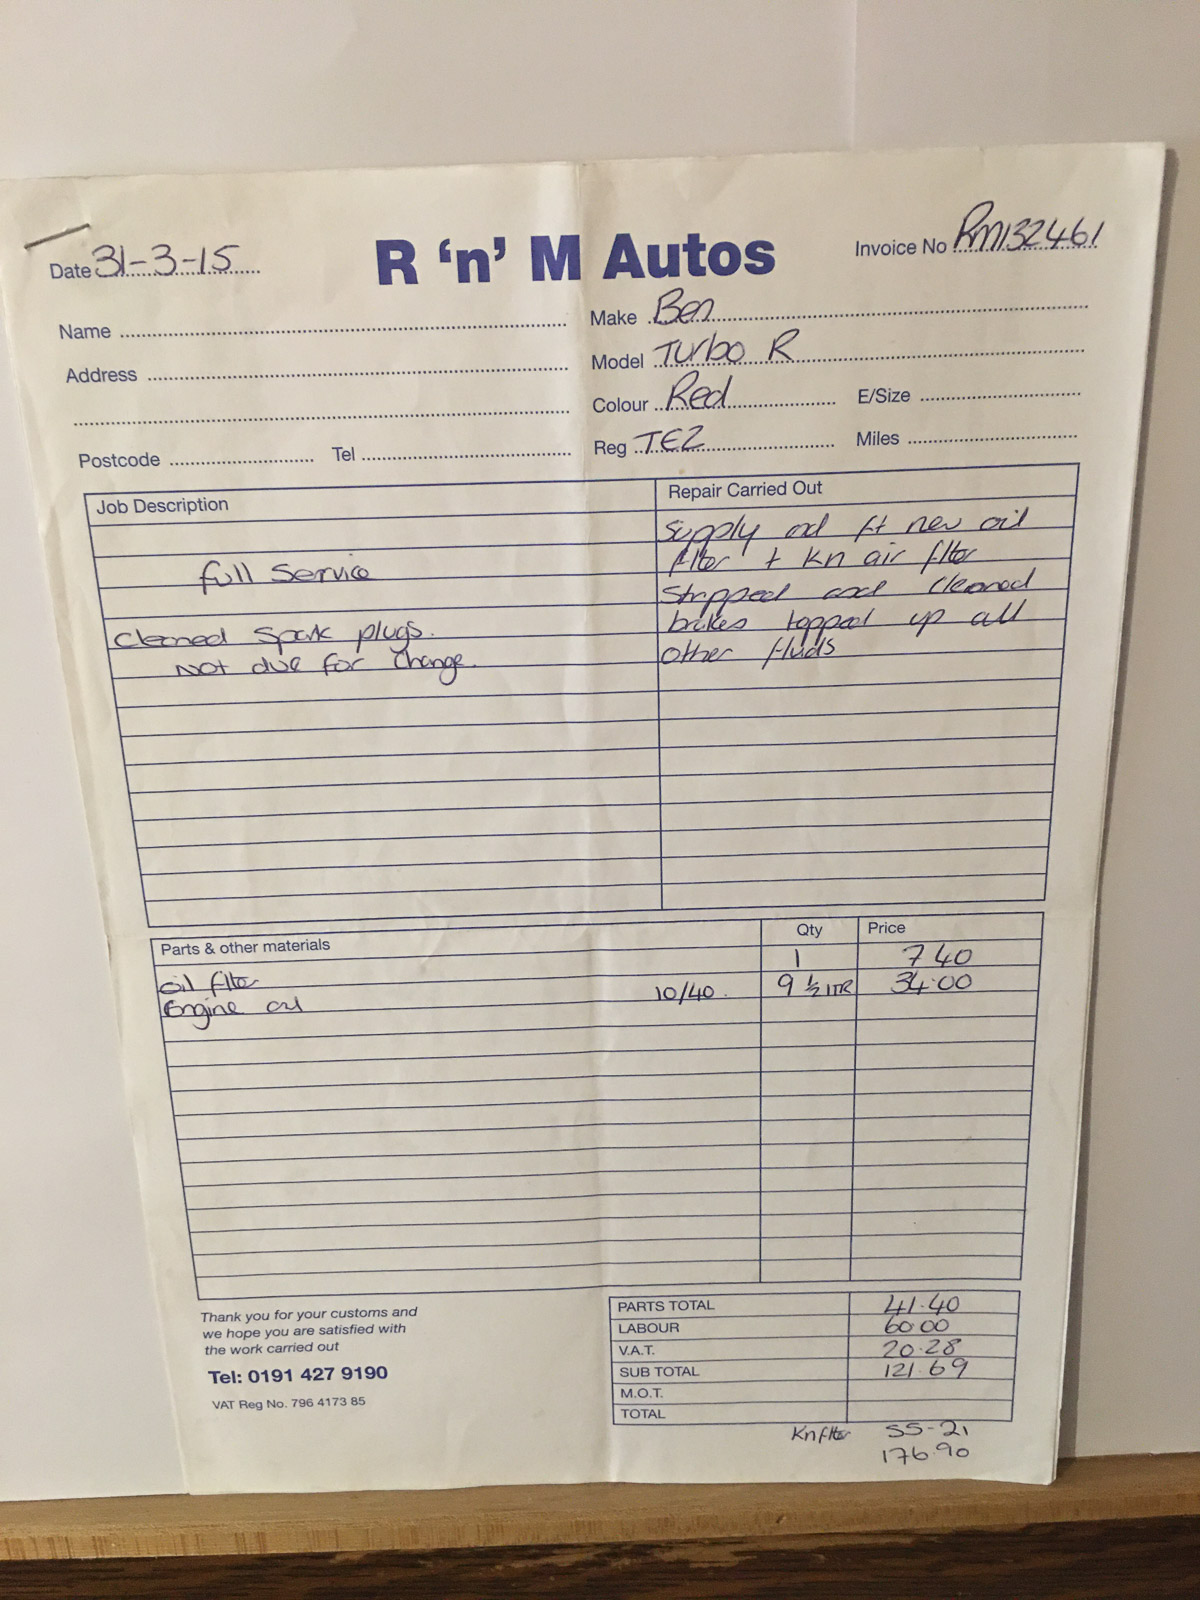 Date 31-3-15
R 'n' M Autos
Invoice No RM132461
Name
Make Ben
Address
Model Turbo R
Colour Red E/Size
Postcode Tel
Reg TEZ Miles
Job Description
Full Service
Cleaned Spark plugs.
Not due for change.
Repair Carried Out
Supply and ft new oil
flter + Kn air flter
Stripped and cleaned
brakes topped up all
other fluds
Parts & other materials Qty Price
oil flter 1 7 40
Engine oil 10/40. 9 ½ LTR 34.00
PARTS TOTAL 41.40
LABOUR 60.00
V.A.T. 20.28
SUB TOTAL 121.69
M.O.T.
TOTAL
Kn flter 55-21
176.90
Thank you for your customs and
we hope you are satisfied with
the work carried out
Tel: 0191 427 9190
VAT Reg No. 796 4173 85